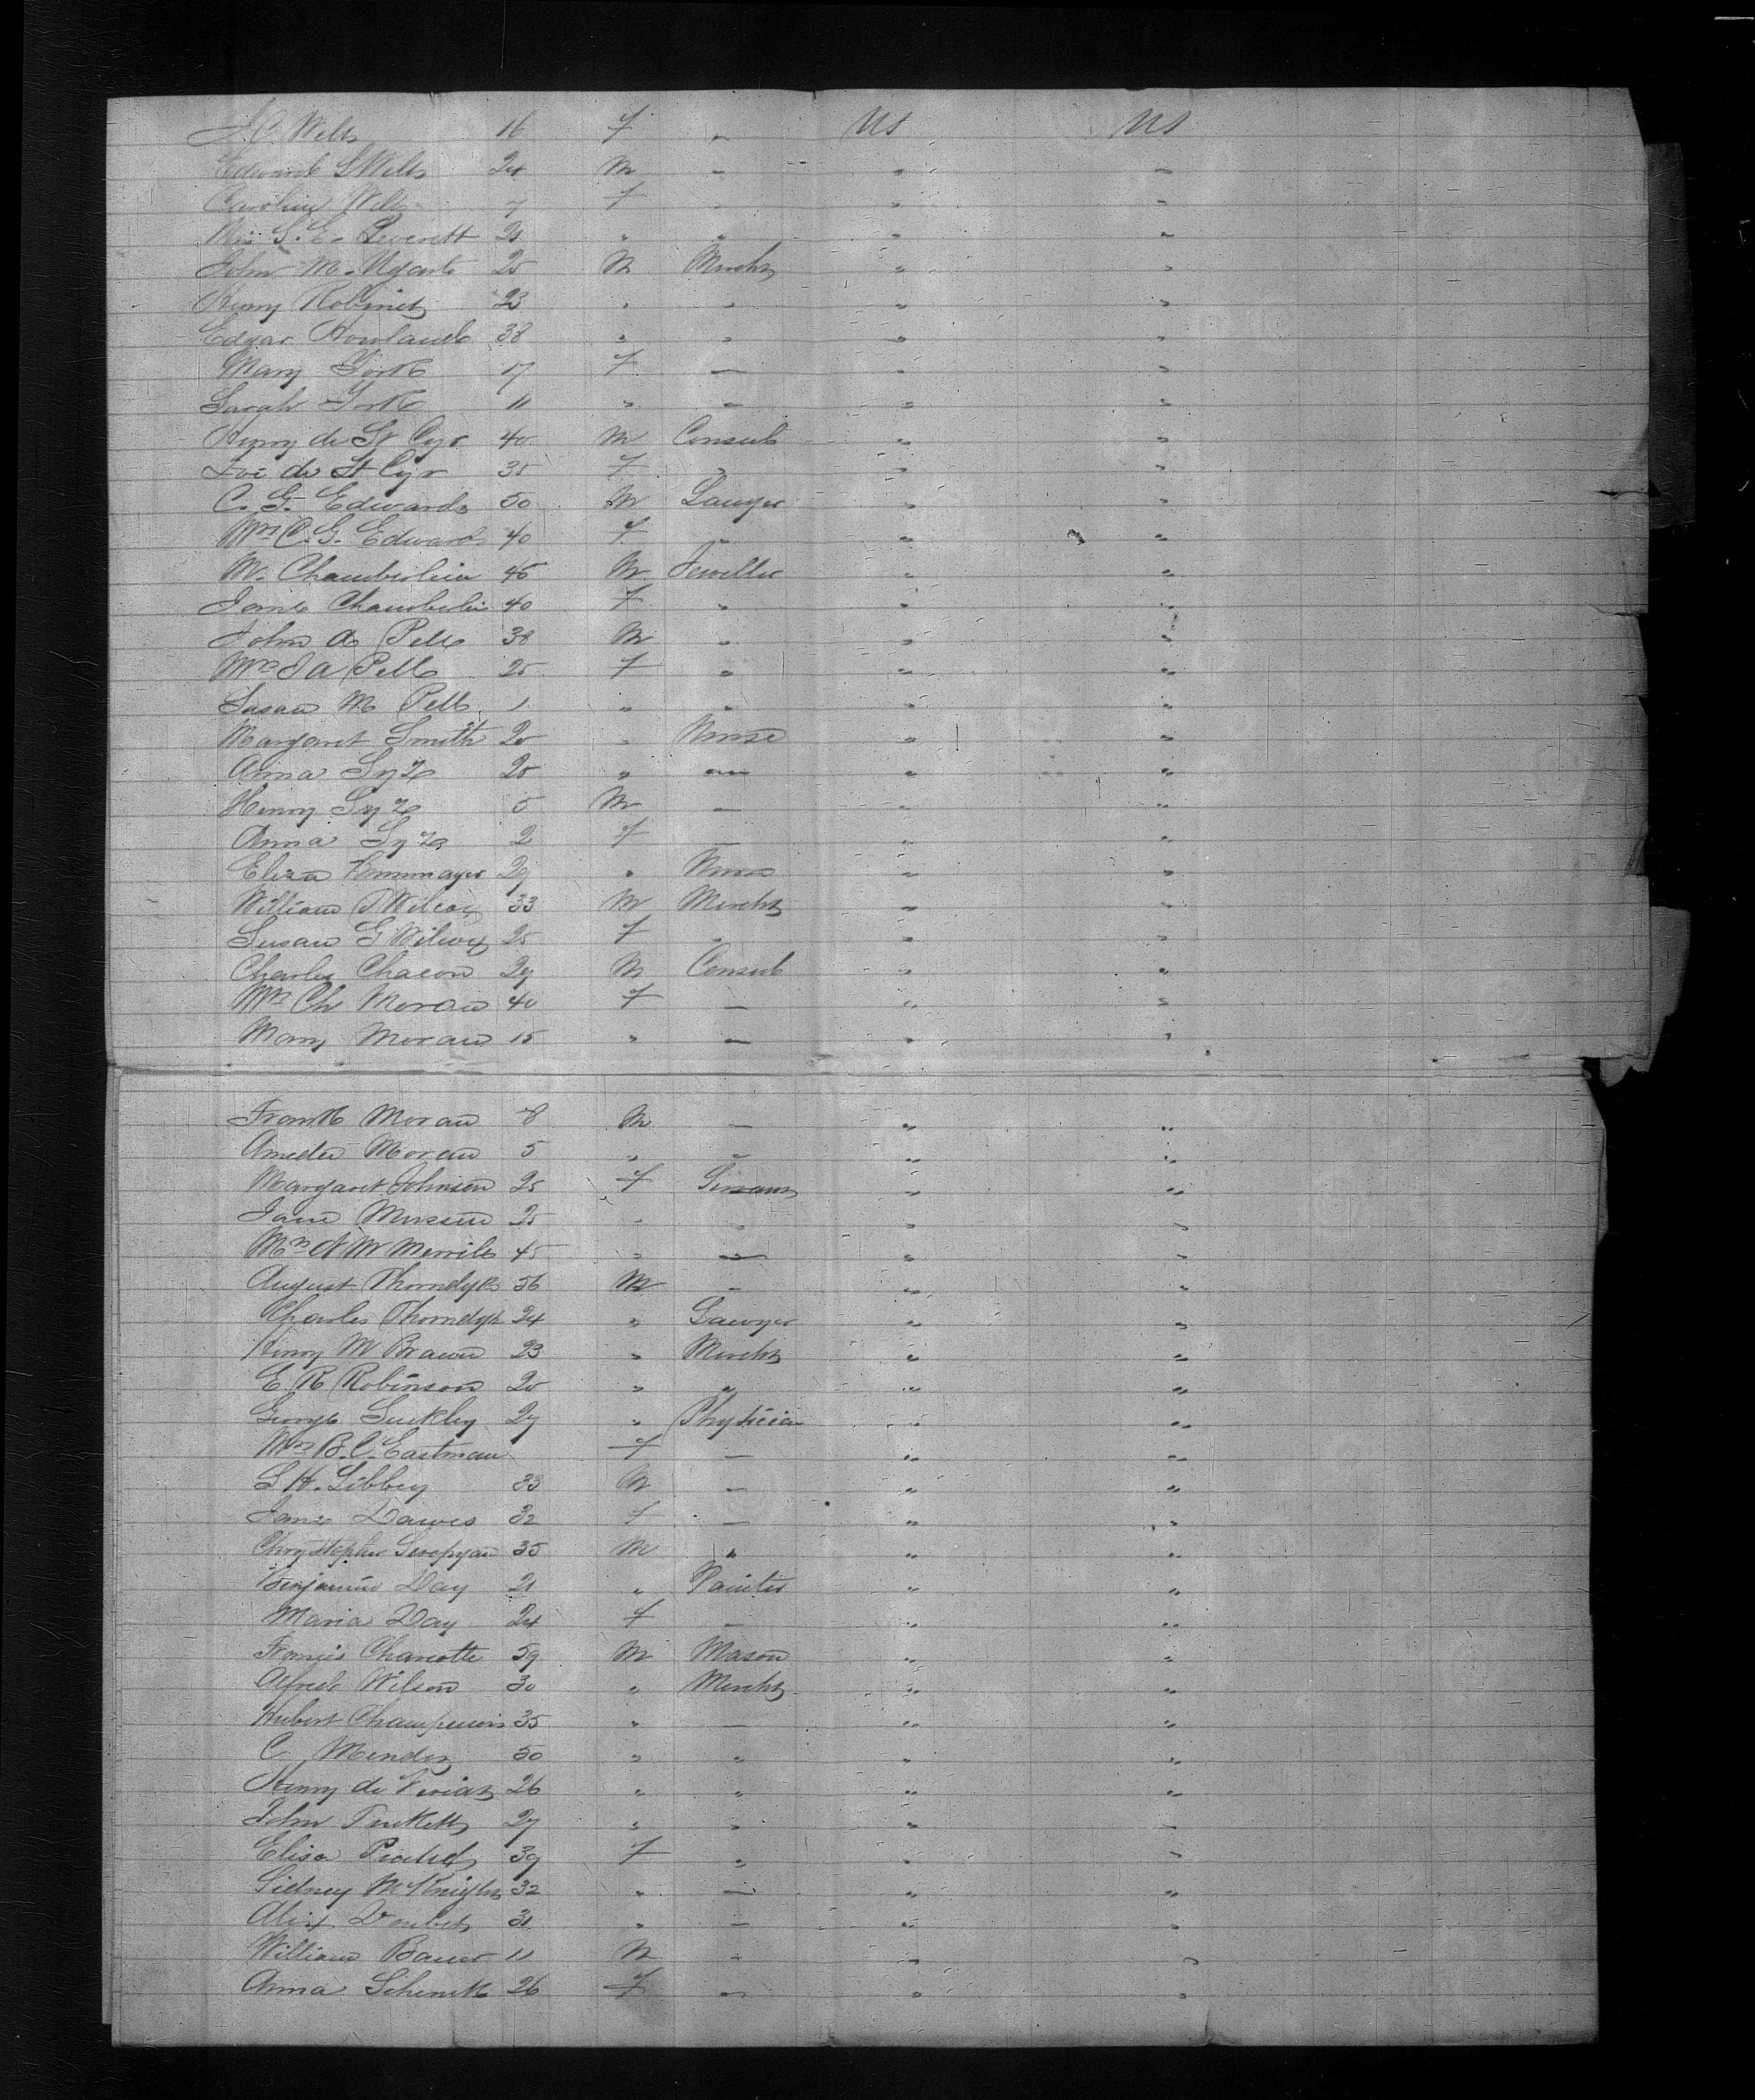 J.C. Wells 16 F " US US
Edward S Wells 24 M " " "
Caroline Wells 7 F " " "
Mrs S. E. Leverett 21 " " " "
John M. Ugarte 25 M Mercht " "
Henry Robinet 23 " " " "
Edgar Howland 38 " " " "
Mary York 17 F — " "
Sarah York 11 " — " "
Henry de St Cyr 40 M Consul " "
de St Cyr 35 F " " "
C. G. Edwards 50 M Lawyer " "
Mrs C. G. Edwards 40 F " " "
M. Chamberlain 45 M Jeweller " "
Jane Chamberlin 40 F " " "
John A Pell 38 M " " "
Mrs J A Pell 25 F " " "
Susan M Pell 1 " " " "
Margaret Smith 20 " Nurse " "
Anna Syz 25 " — " "
Henry Syz 5 M — " "
Anna Syz 2 F — " "
Eliza 29 " Nurse " "
William T Wilcox 33 M Mercht " "
Susan G Wilcox 25 F " " "
Charles Chacon 29 M Consul " "
Mrs Ch Moran 40 F — " "
Mary Moran 15 " — " "
Frank Moran 8 M — " "
Amedee Moran 5 " — " "
Margaret Johnson 25 F Servant " "
Jane 25 " " " "
Mrs A M Merrile 45 " — " "
August Thorndyke 56 M — " "
Charles Thorndyk 24 " Lawyer " "
Henry M Brawn 23 " Mercht " "
E R Robinson 20 " " " "
George Suckley 27 " Physician " "
Mrs B. C. Eastman F — " "
S H. Libbey 33 M — " "
Jane Dawes 32 F — " "
Chrystopher Seropyan 35 M " " "
Benjamin Day 21 " Painter " "
Maria Day 24 F — " "
Francis Charcotte 59 M Mason " "
Alfred Wilson 30 " Mercht " "
Hubert Champenois 35 " — " "
C Mendez 50 " " " "
Henry de 26 " " " "
John Tuckett 27 " " " "
Elisa 39 F " " "
Sidney McKnight 32 " — " "
Alix 31 " — " "
William Bauer 11 M — " "
Anna Schenck 26 F — " "